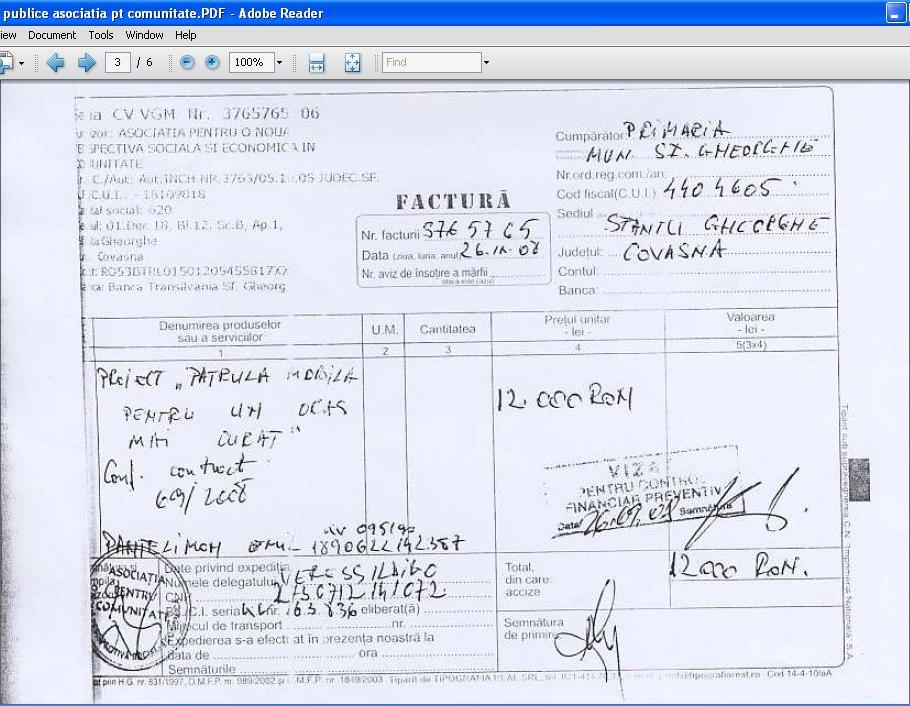 publice asociatia pt comunitate.PDF - Adobe Reader
iew Document Tools Window Help
3 / 6 100% Find
CV VGM Nr. 3765765 06
ASOCIATIA PENTRU O NOUA
SPECTIVA SOCIALA SI ECONOMICA IN
UNITATE
C./Aut: Aut.INCH NR.3763/05.1 .05 JUDEC.SF.
C.U.I.. - 18109818
tal social: 620
01.Dec. 18, Bl.12, Sc.B, Ap.1,
Gheorghe
Covasna
RO53BTRL01501205455817XX
Banca Transilvania Sf. Gheorg
FACTURĂ
Nr. facturii 3765765
Data (ziua, luna, anul) 26.IX.08
Nr. aviz de însoţire a mărfii
(dacă este cazul)
Cumpărător PRIMARIA
MUN. SF. GHEORGHE
Nr.ord.reg.com./an:
Cod fiscal(C.U.I.) 4404605
Sediul SFANTU GHEORGHE
Judeţul: COVASNA
Contul:
Banca:
Denumirea produselor sau a serviciilor
U.M.
Cantitatea
Preţul unitar - lei -
Valoarea - lei -
1 2 3 4 5(3x4)
PROIECT „PATRULA MOBILA
PENTRU UN ORAS
MAI CURAT"
Conf. contract
69/2008
12.000 RON
VIZA
PENTRU CONTROL
FINANCIAR PREVENTIV
Data 26.09.08 Semnătura
PANTELIMON
ASOCIATIA
PENTRU
COMUNITATE
Date privind expediţia
Numele delegatului VERESS ILDIKO
CNP
B.I./C.I. seria nr. eliberat(ă)
Mijlocul de transport nr.
Expedierea s-a efectuat în prezenţa noastră la
data de ora
Semnăturile
Total,
din care:
accize
12000 RON.
Semnătura
de primire
prin H.G. nr. 831/1997, O.M.F.P. nr. 989/2002 şi O.M.F.P. nr. 1849/2003 Tiparit de TIPOGRAFIA REAL SRL, tel. www.tipografiareal.ro Cod 14-4-10/aA
Tipărit sub supravegherea C.N. "Imprimeria Naţională" S.A.